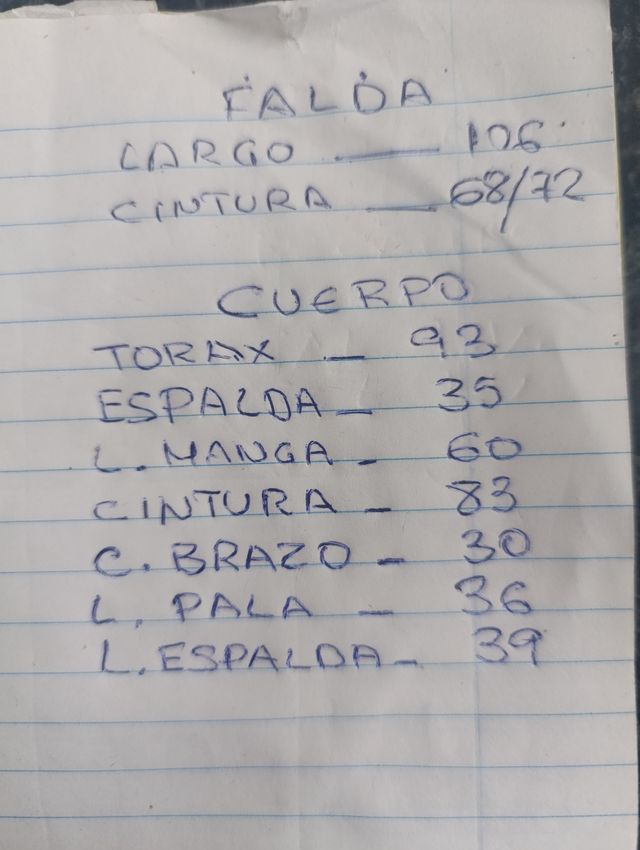 FALDA
LARGO — 106
CINTURA — 68/72
CUERPO
TORAX — 93
ESPALDA — 35
L. MANGA - 60
CINTURA - 83
C. BRAZO - 30
L. PALA - 36
L. ESPALDA - 39